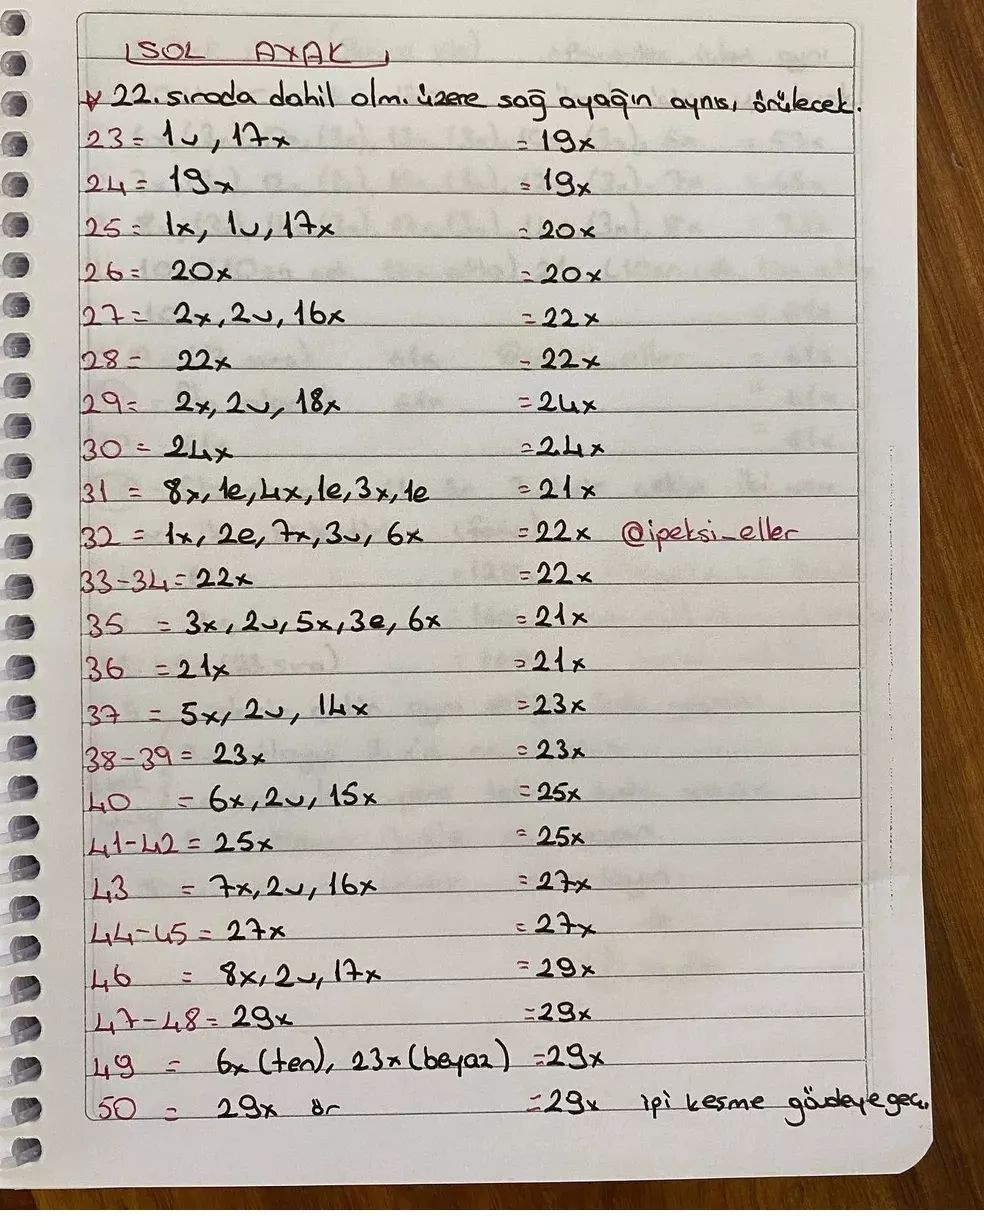 SOL AYAK
22. sırada dahil olm. üzere sağ ayağın aynısı örülecek.
23 = 1v, 17x = 19x
24 = 19x = 19x
25 = 1x, 1v, 17x = 20x
26 = 20x = 20x
27 = 2x, 2v, 16x = 22x
28 = 22x = 22x
29 = 2x, 2v, 18x = 24x
30 = 24x = 24x
31 = 8x, 1e, 4x, 1e, 3x, 1e = 21x
32 = 1x, 2e, 7x, 3v, 6x = 22x @ipeksi_eller
33-34 = 22x = 22x
35 = 3x, 2v, 5x, 3e, 6x = 21x
36 = 21x = 21x
37 = 5x, 2v, 14x = 23x
38-39 = 23x = 23x
40 = 6x, 2v, 15x = 25x
41-42 = 25x = 25x
43 = 7x, 2v, 16x = 27x
44-45 = 27x = 27x
46 = 8x, 2v, 17x = 29x
47-48 = 29x = 29x
49 = 6x (ten), 23x (beyaz) = 29x
50 = 29x ör = 29x ipi kesme gövdeye geç.